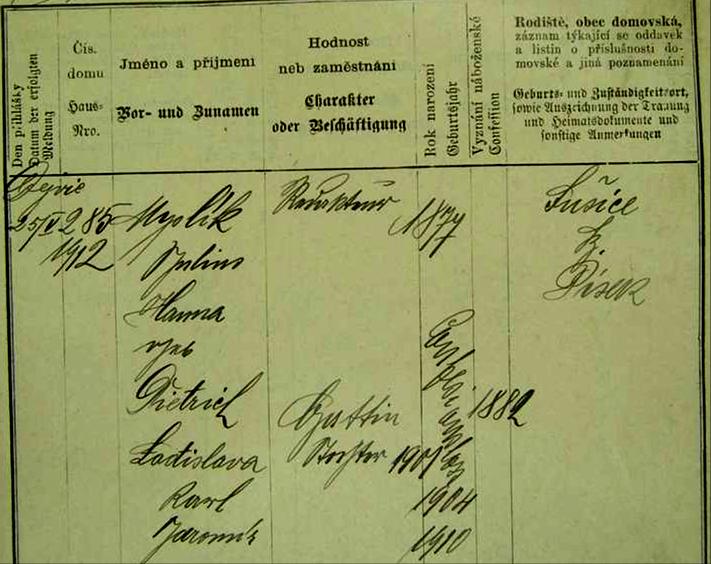 Den přihlášky
Datum der erfolgten
Meldung
Čís.
domu
Haus-
Nro.
Jméno a příjmení
Vor- und Zunamen
Hodnost
neb zaměstnání
Charakter
oder Beschäftigung
Rok narození
Geburtsjahr
Vyznání náboženské
Confession
Rodiště, obec domovská,
záznam týkající se oddavek
a listin o příslušnosti do-
movské a jiná poznamenání
Geburts- und Zuständigkeitsort,
sowie Auszeichnung der Trauung
und Heimatsdokumente und
sonstige Anmerkungen
Dejvic
25/V 285 Myslik Redakteur 1877 Sušice
1912 Julius B.
Hanna Písek
geb
Dietrich Gattin 1882
Ladislava Tochter 1901
Karl 1904
Jaromír 1910